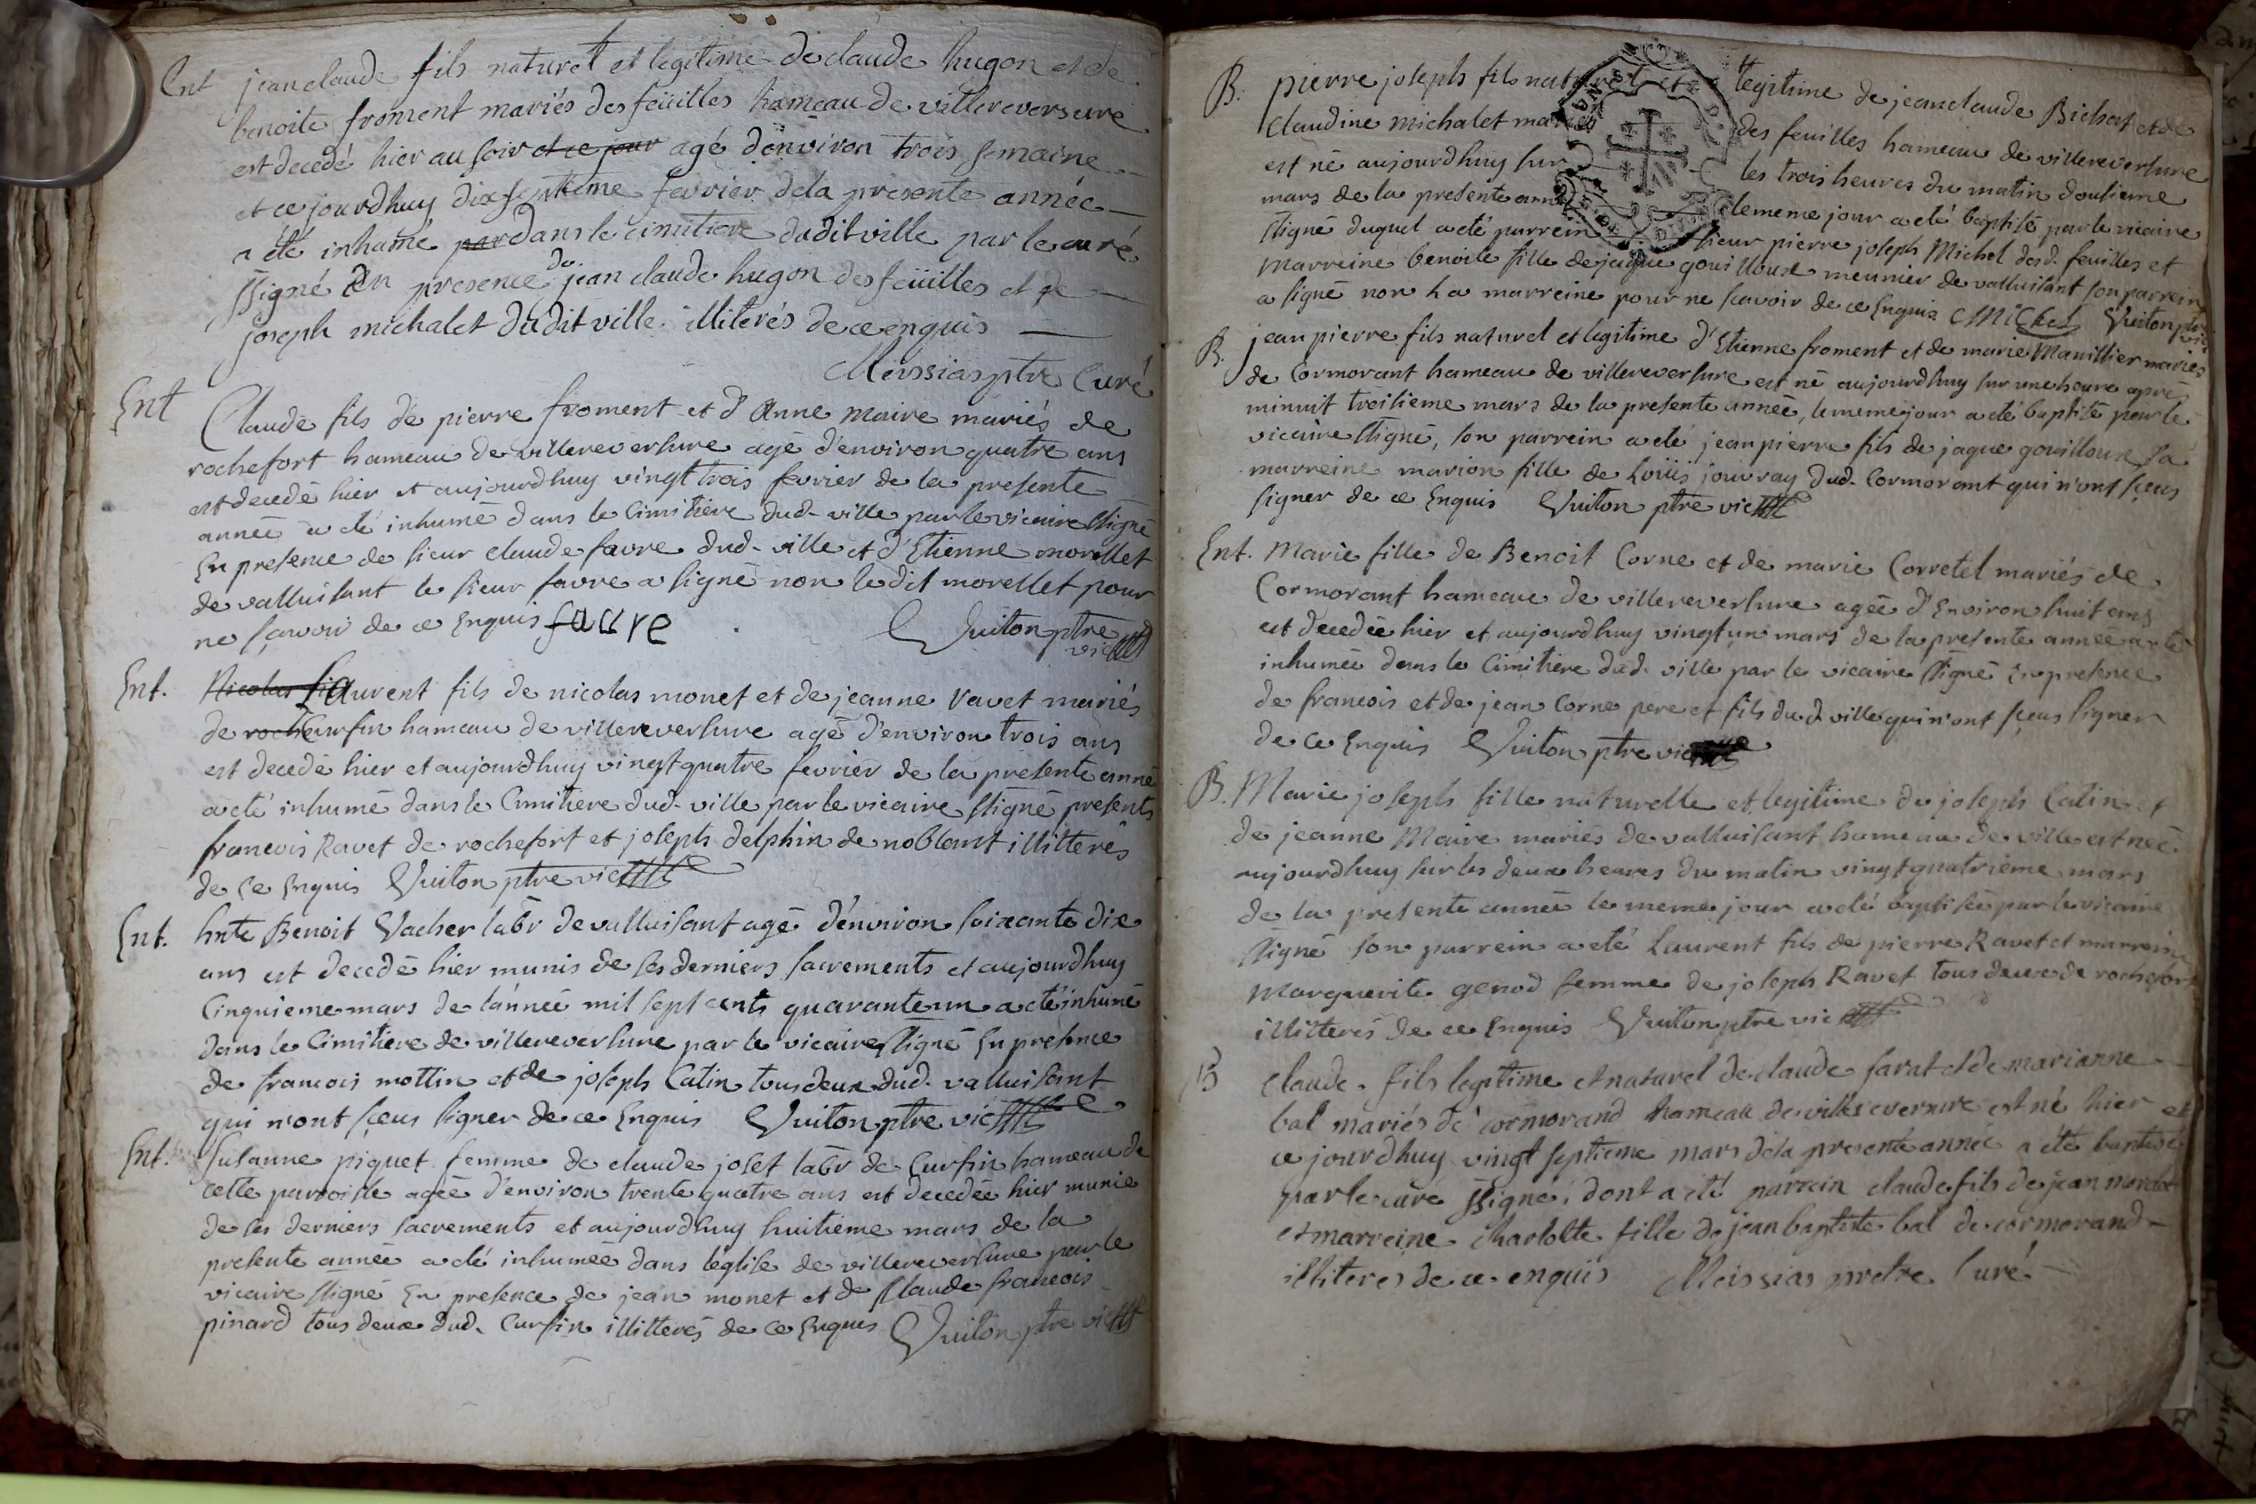 Ent jean claude fils naturel et legitime de claude hugon et de
benoite froment mariés des feüilles hameau de villereversure
est decedé hier au soir et ce jour agé denviron trois semaine
et ce jourdhuy dixseptieme fevrier dela presente année
a été inhumé par dans le cimitiere dudit ville par le curé
ssigné En presence de jean claude hugon des feüilles et de
joseph michalet dudit ville illiterés de ce enquis
Meissias ptre Curé
Ent Claude fils de pierre froment et d'Anne maire mariés de
rochefort hameau de villereversure agé d'environ quatre ans
est decedé hier et aujourdhuy vingt trois fevrier de la presente
année a eté inhumé dans le Cimitiere dud. ville par le vicaire ssigné
En presence de sieur claude favre dud. ville et d'Etienne morellet
de valluisant le sieur favre a signé non le dit morellet pour
ne sçavoir de ce Enquis favre
Vuiton ptre
vic
Ent. Nicolas fi Laurent fils de nicolas monet et de jeanne Ravet mariés
de roch Cursin hameau de villereversure agé d'environ trois ans
est decedé hier et aujourdhuy vingt quatre fevrier de la presente anné
a eté inhumé dans le Cimitiere dud. ville par le vicaire ssigné presents
francois Ravet de rochefort et joseph delphin de noblant illitterés
de ce Enquis Vuiton ptre vic
Ent. hnte Benoit Vacher labr de valluisant agé d'environ soixante dix
ans est decedé hier munis de ses derniers sacrements et aujourdhuy
Cinquieme mars de lannée mil sept cents quarante un a eté inhumé
dans le Cimitiere de villereversure par le vicaire ssigné En presence
de francois mottin et de joseph Catin tous deux dud. valluisant
qui n'ont sçeus signer de ce Enquis Vuiton ptre vic
Ent. Susanne piquet femme de claude joset labr de Cursin hameau de
cette parroisse agée d'environ trente quatre ans est decedée hier munie
de ses derniers sacrements et aujourdhuy huitieme mars de la
presente année a eté inhumée dans leglise de villereversure par le
vicaire ssigné En presence de jean monet et de Claude francois
pinard tous deux dud. Cursin illitterés de ce Enquis Vuiton ptre vic
B. pierre joseph fils naturel et legitime de jean claude Bichat et de
Claudine michalet mariés des feuilles hameau de villereversure
est né aujourdhuy sur les trois heures du matin dousieme
mars de la presente année le meme jour a eté baptisé par le vicaire
ssigné duquel a eté parrein sieur pierre joseph Michel desd. feuilles et
Marreine benoite fille de jaque gouilloux meunier de valluisant son parrein
a signé non la marreine pour ne scavoir de ce Enquis Michel Vuiton ptre
vic
B. jean pierre fils naturel et legitime d'Etienne froment et de marie Mauillier mariés
de Cormorant hameau de villereversure est né aujourdhuy sur une heure aprè
minuit treisieme mars de la presente année, le meme jour a eté baptisé par le
vicaire ssigné, son parrein a eté jean pierre fils de jaque gouilloux sa
marreine marion fille de Louïs jouvray dud. Cormorant qui n'ont sçeus
signer de ce Enquis Vuiton ptre vic
Ent. Marie fille de Benoit Corne et de marie Corretel mariés de
Cormorant hameau de villereversure agée d'Environ huit ans
est decedée hier et aujourdhuy vingt un mars de la presente année a eté
inhumée dans le Cimitiere dud. ville par le vicaire ssigné En presence
de francois et de jean Corne pere et fils dud. ville qui n'ont sçeus signer
de ce Enquis Vuiton ptre vic
B. Marie joseph fille naturelle et legitime de joseph Catin et
de jeanne Maire mariés de valluisant hameau de ville est née
aujourdhuy sur les deux heures du matin vingt quatrieme mars
de la presente année le meme jour a eté baptisée par le vicaire
ssigné son parrein a eté Laurent fils de pierre Ravet et marreine
Marguerite genod femme de joseph Ravet tous deux de rochefort
illitterés de ce Enquis Vuiton ptre vic
B Claude fils legitime et naturel de claude farat et de marianne
bal mariés de cormorand hameau de villereversure est né hier et
ce jourdhuy vingt septieme mars dela presente année a été baptisé
par le curé ssigné, dont a été parrein claude fils de jean
et marreine charlotte fille de jean baptiste bal de cormorand
illiterés de ce enquis Meissias pretre Curé